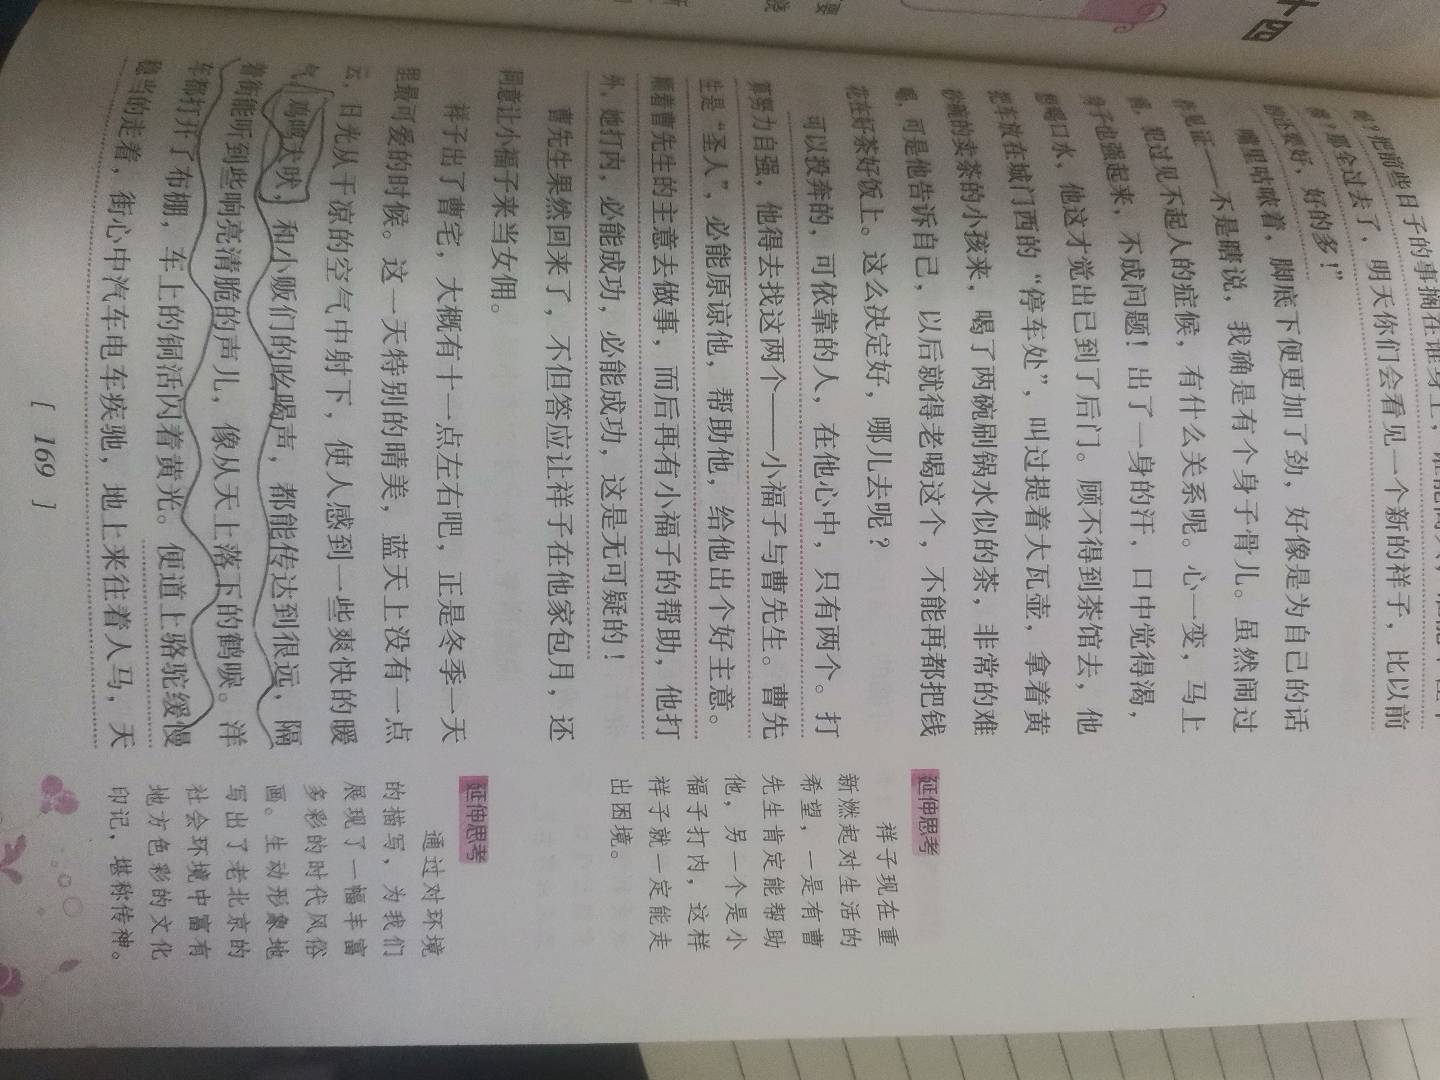 十四
的事搁在谁身上，谁能
候？把前些日子
候？那全过去了，明天你们会看见一个新的样子，比以前
的还要好，好的多！”
嘴里咕哝着，脚底下便更加了劲，好像是为自己的话
作见证——不是瞎说，我确是有个身子骨儿。虽然闹过
病，犯过见不起人的症候，有什么关系呢。心一变，马上
身子也强起来，不成问题！出了一身的汗，口中觉得渴，
想喝口水，他这才觉出已到了后门。顾不得到茶馆去，他
把车放在城门西的“停车处”，叫过提着大瓦壶，拿着黄
砂碗的卖茶的小孩来，喝了两碗刷锅水似的茶，非常的难
喝，可是他告诉自己，以后就得老喝这个，不能再都把钱
花在好茶好饭上。这么决定好，哪儿去呢？
可以投奔的，可依靠的人，在他心中，只有两个。打
算努力自强，他得去找这两个——小福子与曹先生。曹先
生是“圣人”，必能原谅他，帮助他，给他出个好主意。
顺着曹先生的主意去做事，而后再有小福子的帮助，他打
外，她打内，必能成功，必能成功，这是无可疑的！
曹先生果然回来了，不但答应让祥子在他家包月，还
同意让小福子来当女佣。
祥子出了曹宅，大概有十一点左右吧，正是冬季一天
里最可爱的时候。这一天特别的晴美，蓝天上没有一点
云，日光从干凉的空气中射下，使人感到一些爽快的暖
气。鸡鸣犬吠，和小贩们的吆喝声，都能传达到很远，隔
着街能听到些响亮清脆的声儿，像从天上落下的鹤唳。洋
车都打开了布棚，车上的铜活闪着黄光。便道上骆驼缓慢
稳当的走着，街心中汽车电车疾驰，地上来往着人马，天
延伸思考
祥子现在重
新燃起对生活的
希望，一是有曹
先生肯定能帮助
他，另一个是小
福子打内，这样
祥子就一定能走
出困境。
延伸思考
通过对环境
的描写，为我们
展现了一幅丰富
多彩的时代风俗
画。生动形象地
写出了老北京的
社会环境中富有
地方色彩的文化
印记，堪称传神。
[ 169 ]